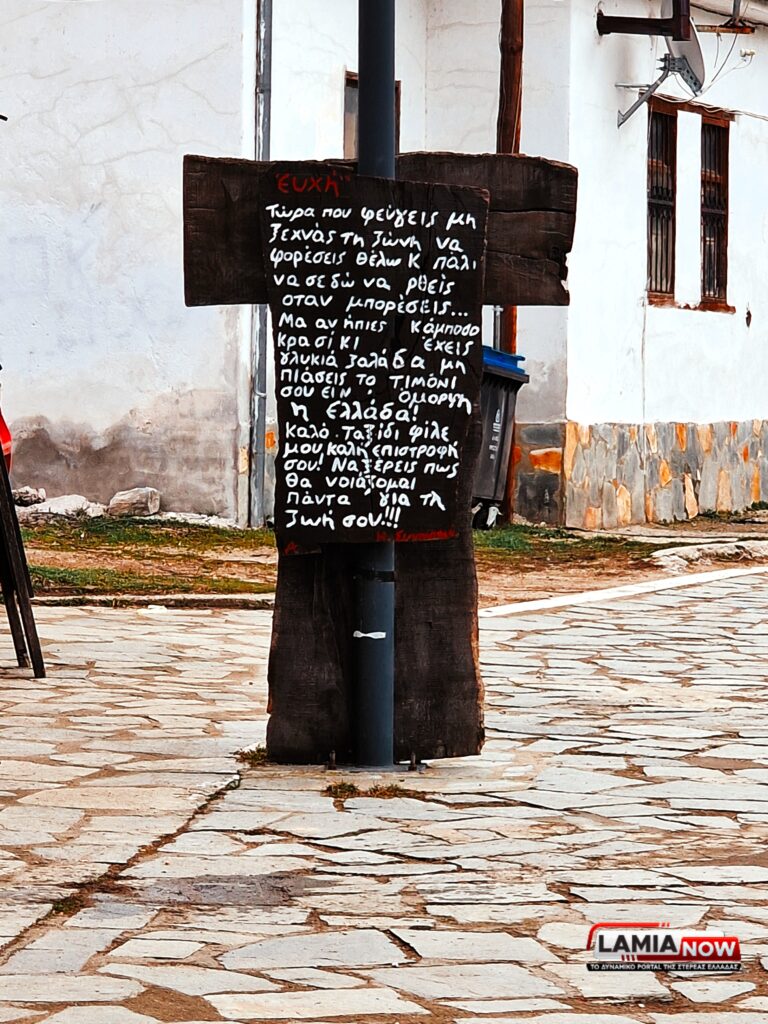 "Ευχή"
Τώρα που φεύγεις μη
ξεχνάς τη ζώνη να
φορέσεις θέλω κ πάλι
να σε δώ να ρθείς
οταν μπορέσεις...
Μα αν ήπιες κάμποσο
κρασί κι έχεις
γλυκιά ζαλάδα μη
πιάσεις το τιμόνι
σου είν' όμορφη
η Ελλάδα!
Καλό ταξίδι φίλε
μου, καλή επιστροφή
σου! Να ξέρεις πως
θα νοιάζομαι
πάντα για τη
ζωή σου!!!
LAMIA NOW
ΤΟ ΔΥΝΑΜΙΚΟ PORTAL ΤΗΣ ΣΤΕΡΕΑΣ ΕΛΛΑΔΑΣ